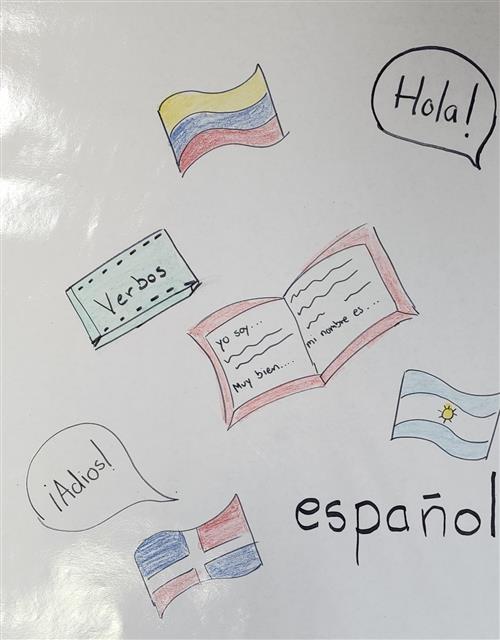 Hola!
Verbos
yo soy...
Muy bien....
mi nombre es....
¡Adios!
español